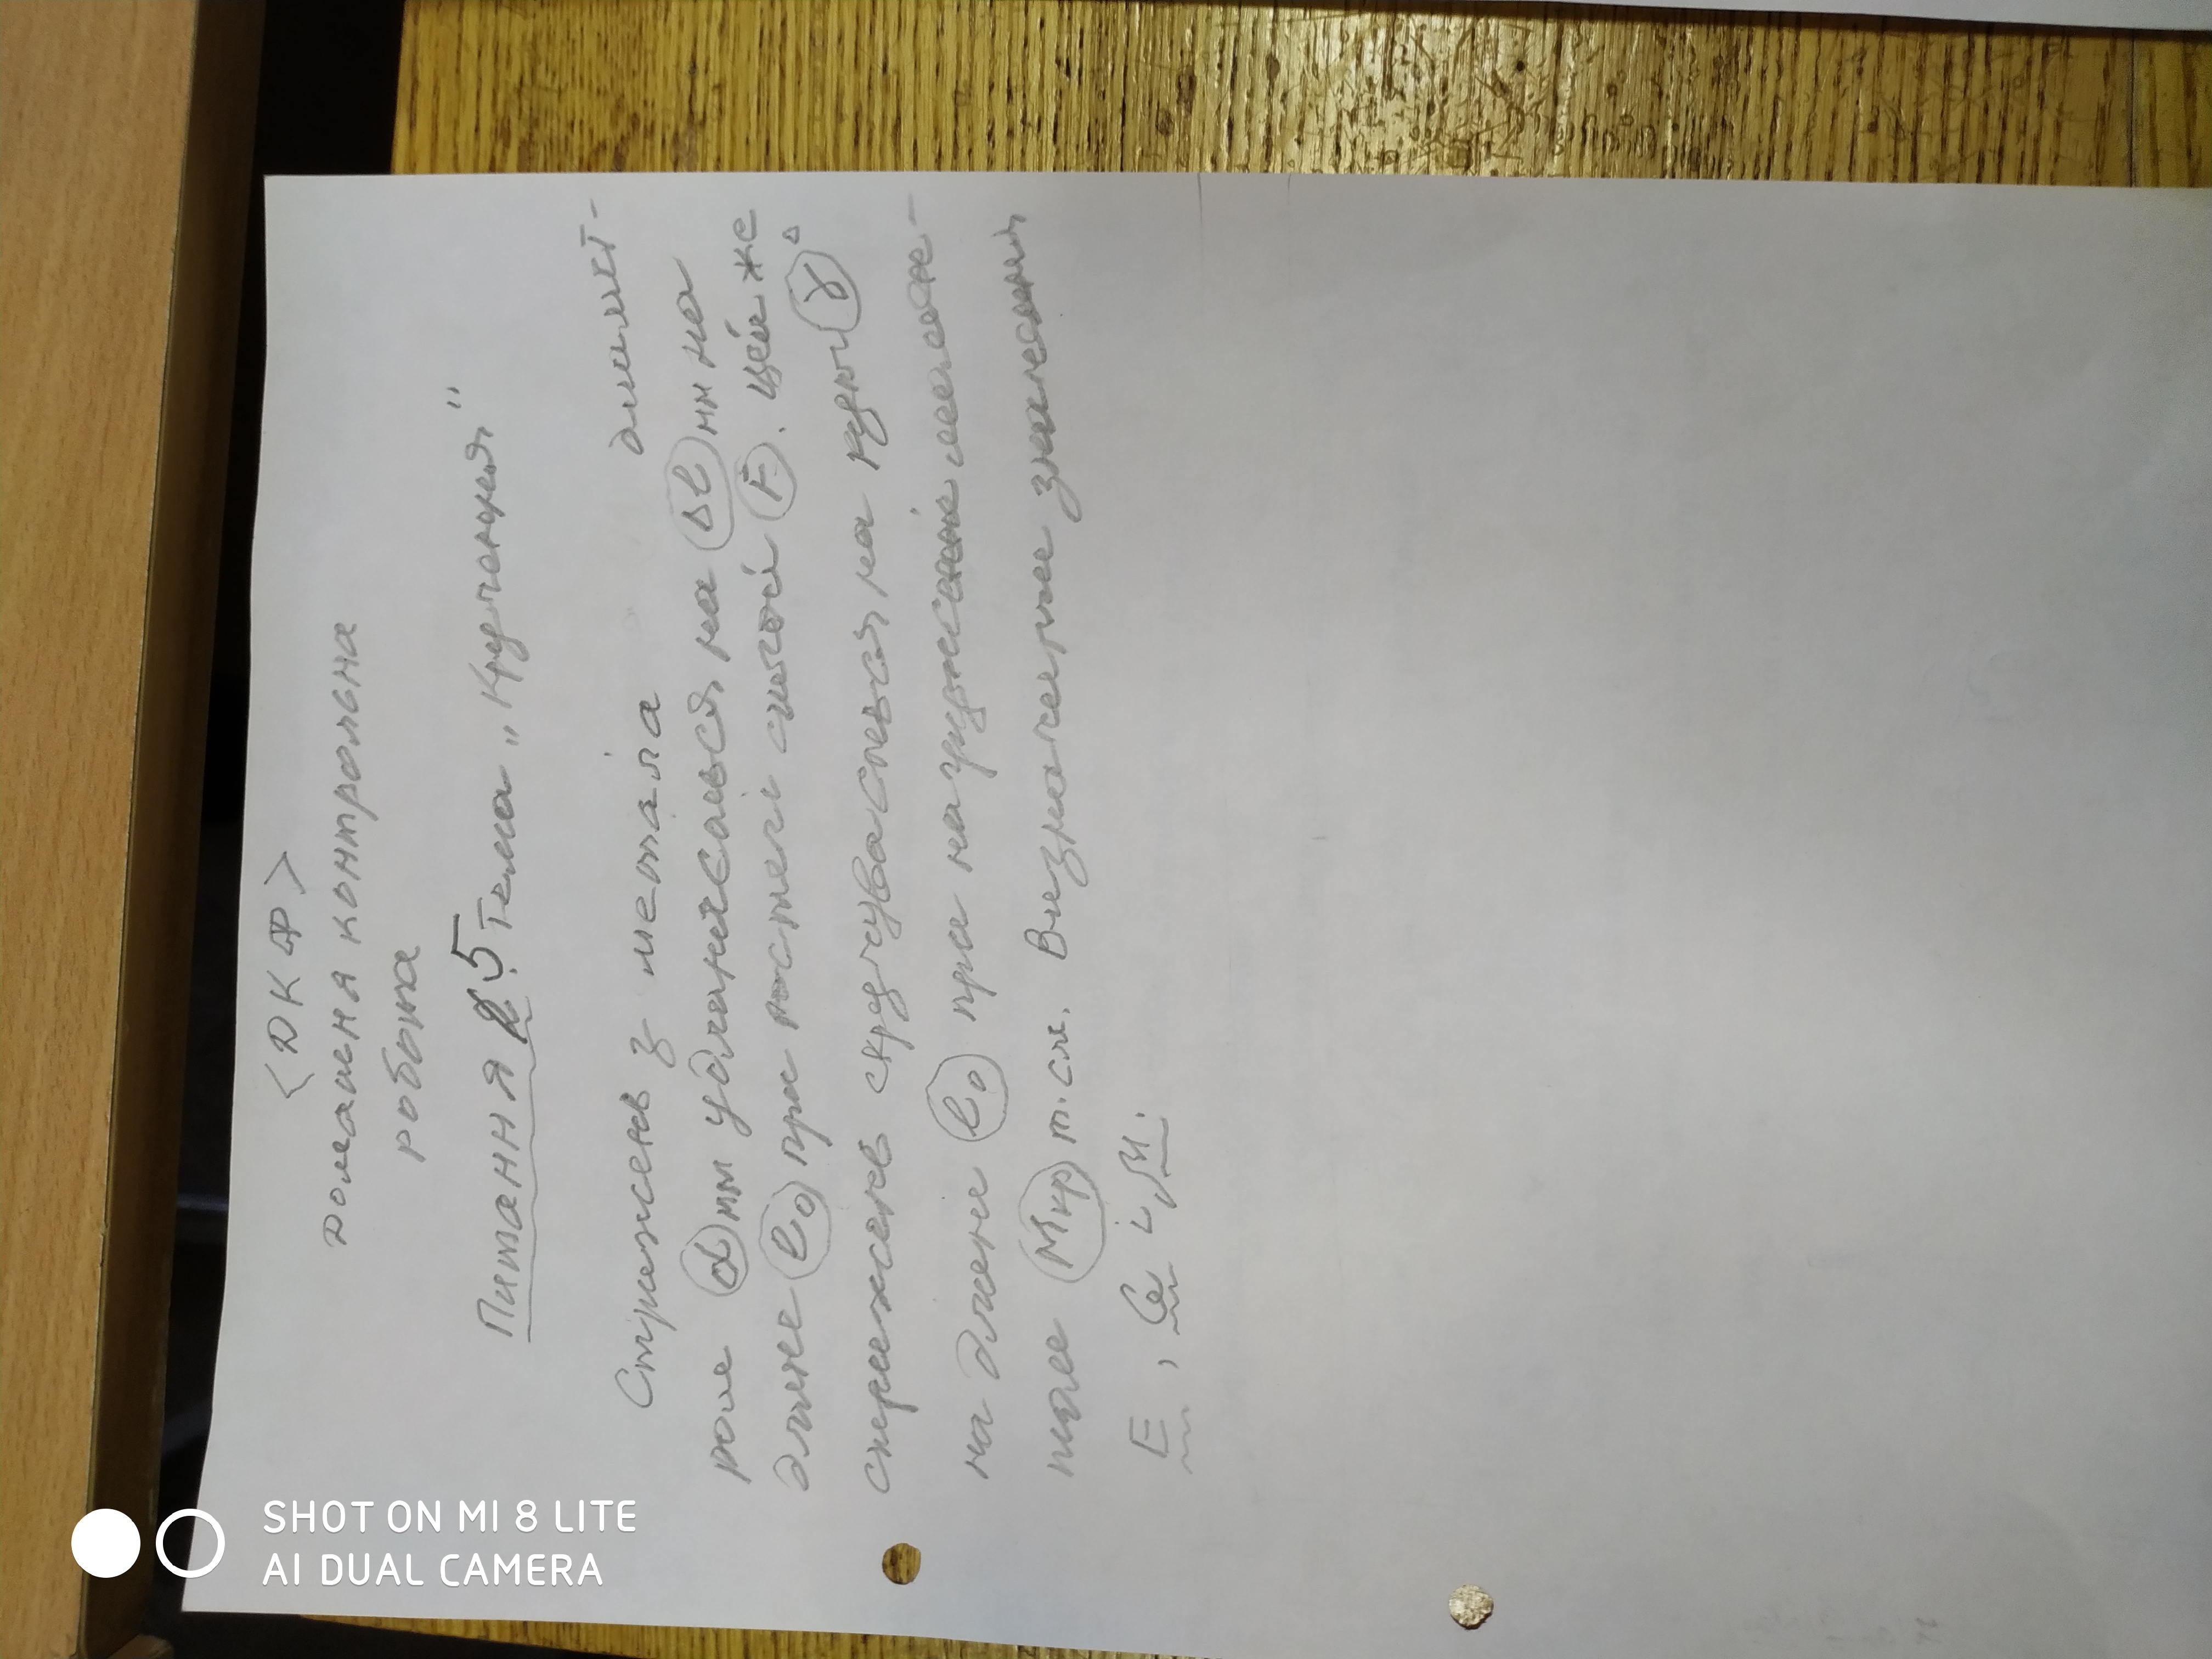 <ДКР>
Домашня контрольна
робота
Питання 5 Тема „Кручення"
Стрижень з метала диамет-
ром d мм удлиняєаься на Δl мм на
длине l₀ при розтягі силой F. Цей же
стрижень скручувається на кут γ°
на длине l₀ при навантаженні
Mкр т.см. Визначение значения
E, G і μ.
SHOT ON MI 8 LITE
AI DUAL CAMERA